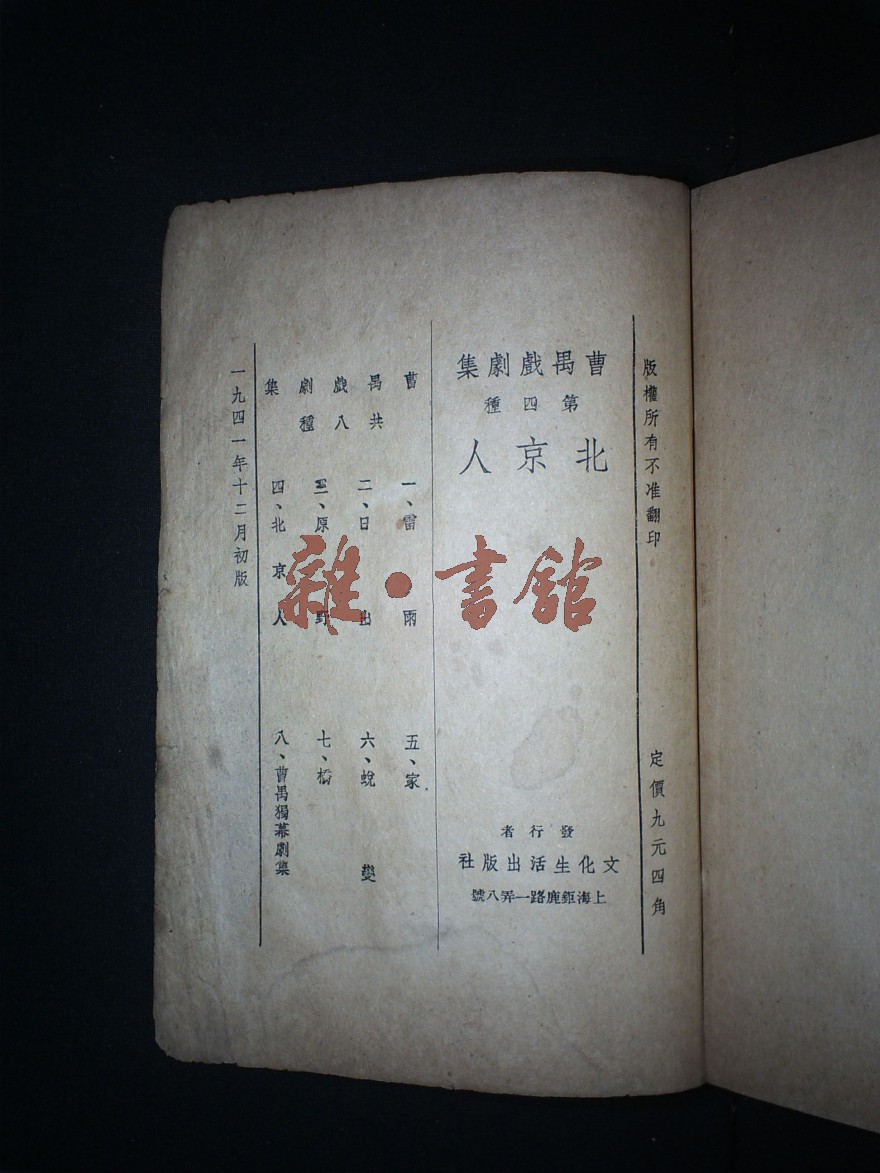 版權所有不准翻印
定價九元四角
曹禺戲劇集
第四種
北京人
發行者
文化生活出版社
上海鉅鹿路一弄八號
曹禺戲劇集
共八種
一、雷雨
二、日出
三、原野
四、北京人
五、家
六、蛻變
七、橋
八、曹禺獨幕劇集
一九四一年十二月初版
雜·書館